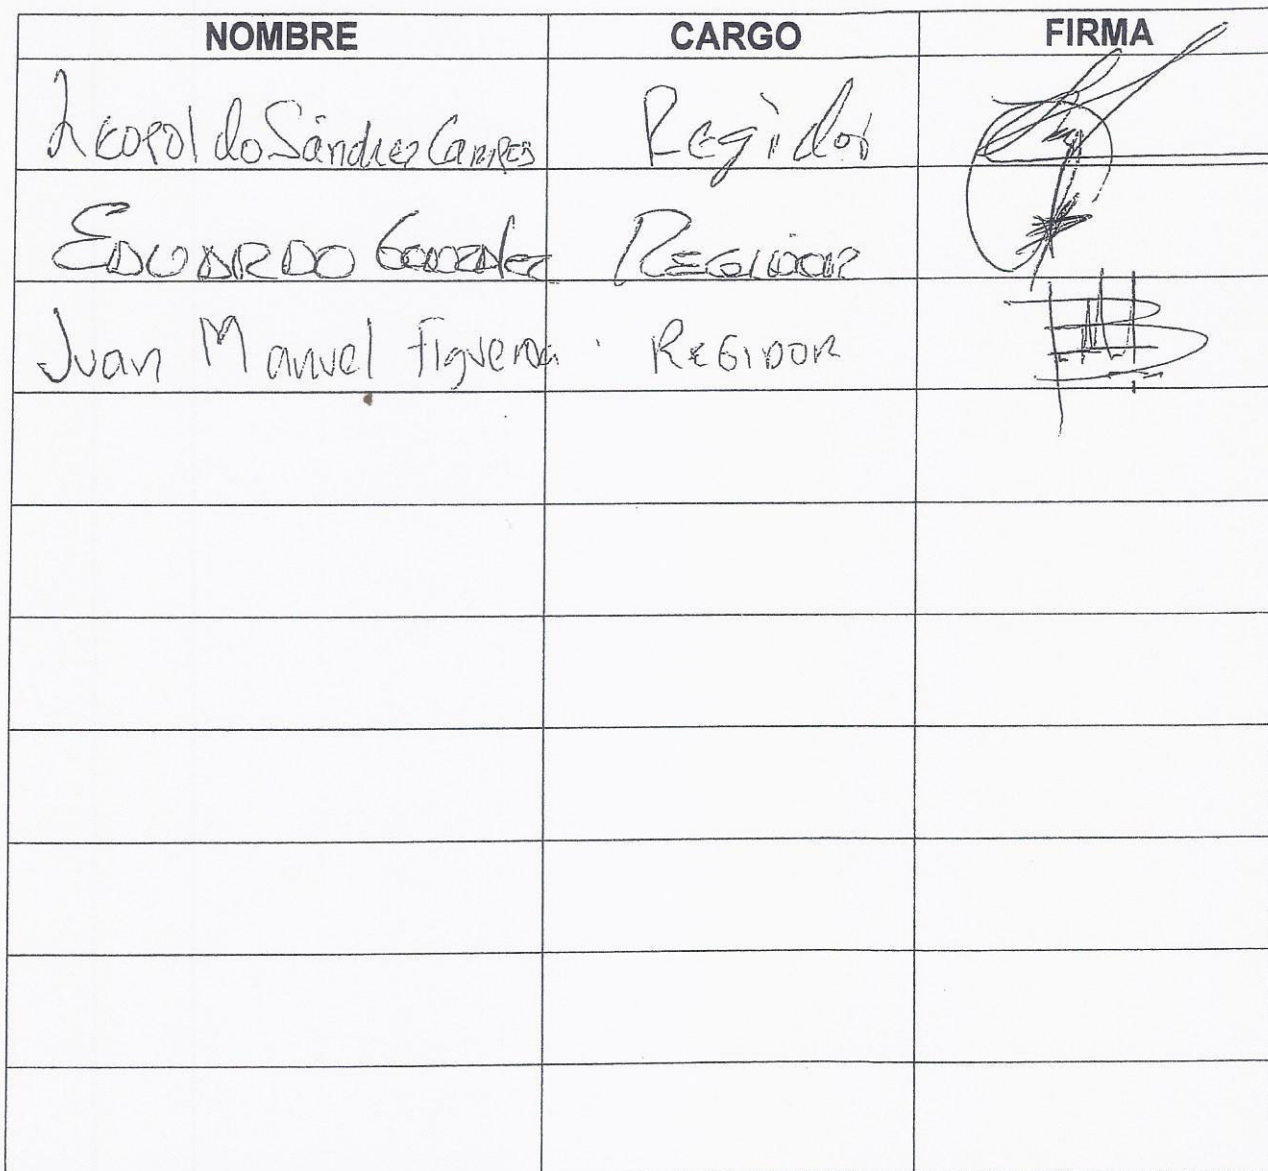 NOMBRE CARGO FIRMA
Leopoldo Sánchez Campos Regidor
EDUARDO González REGIDOR
Juan Manuel Figueroa REGIDOR